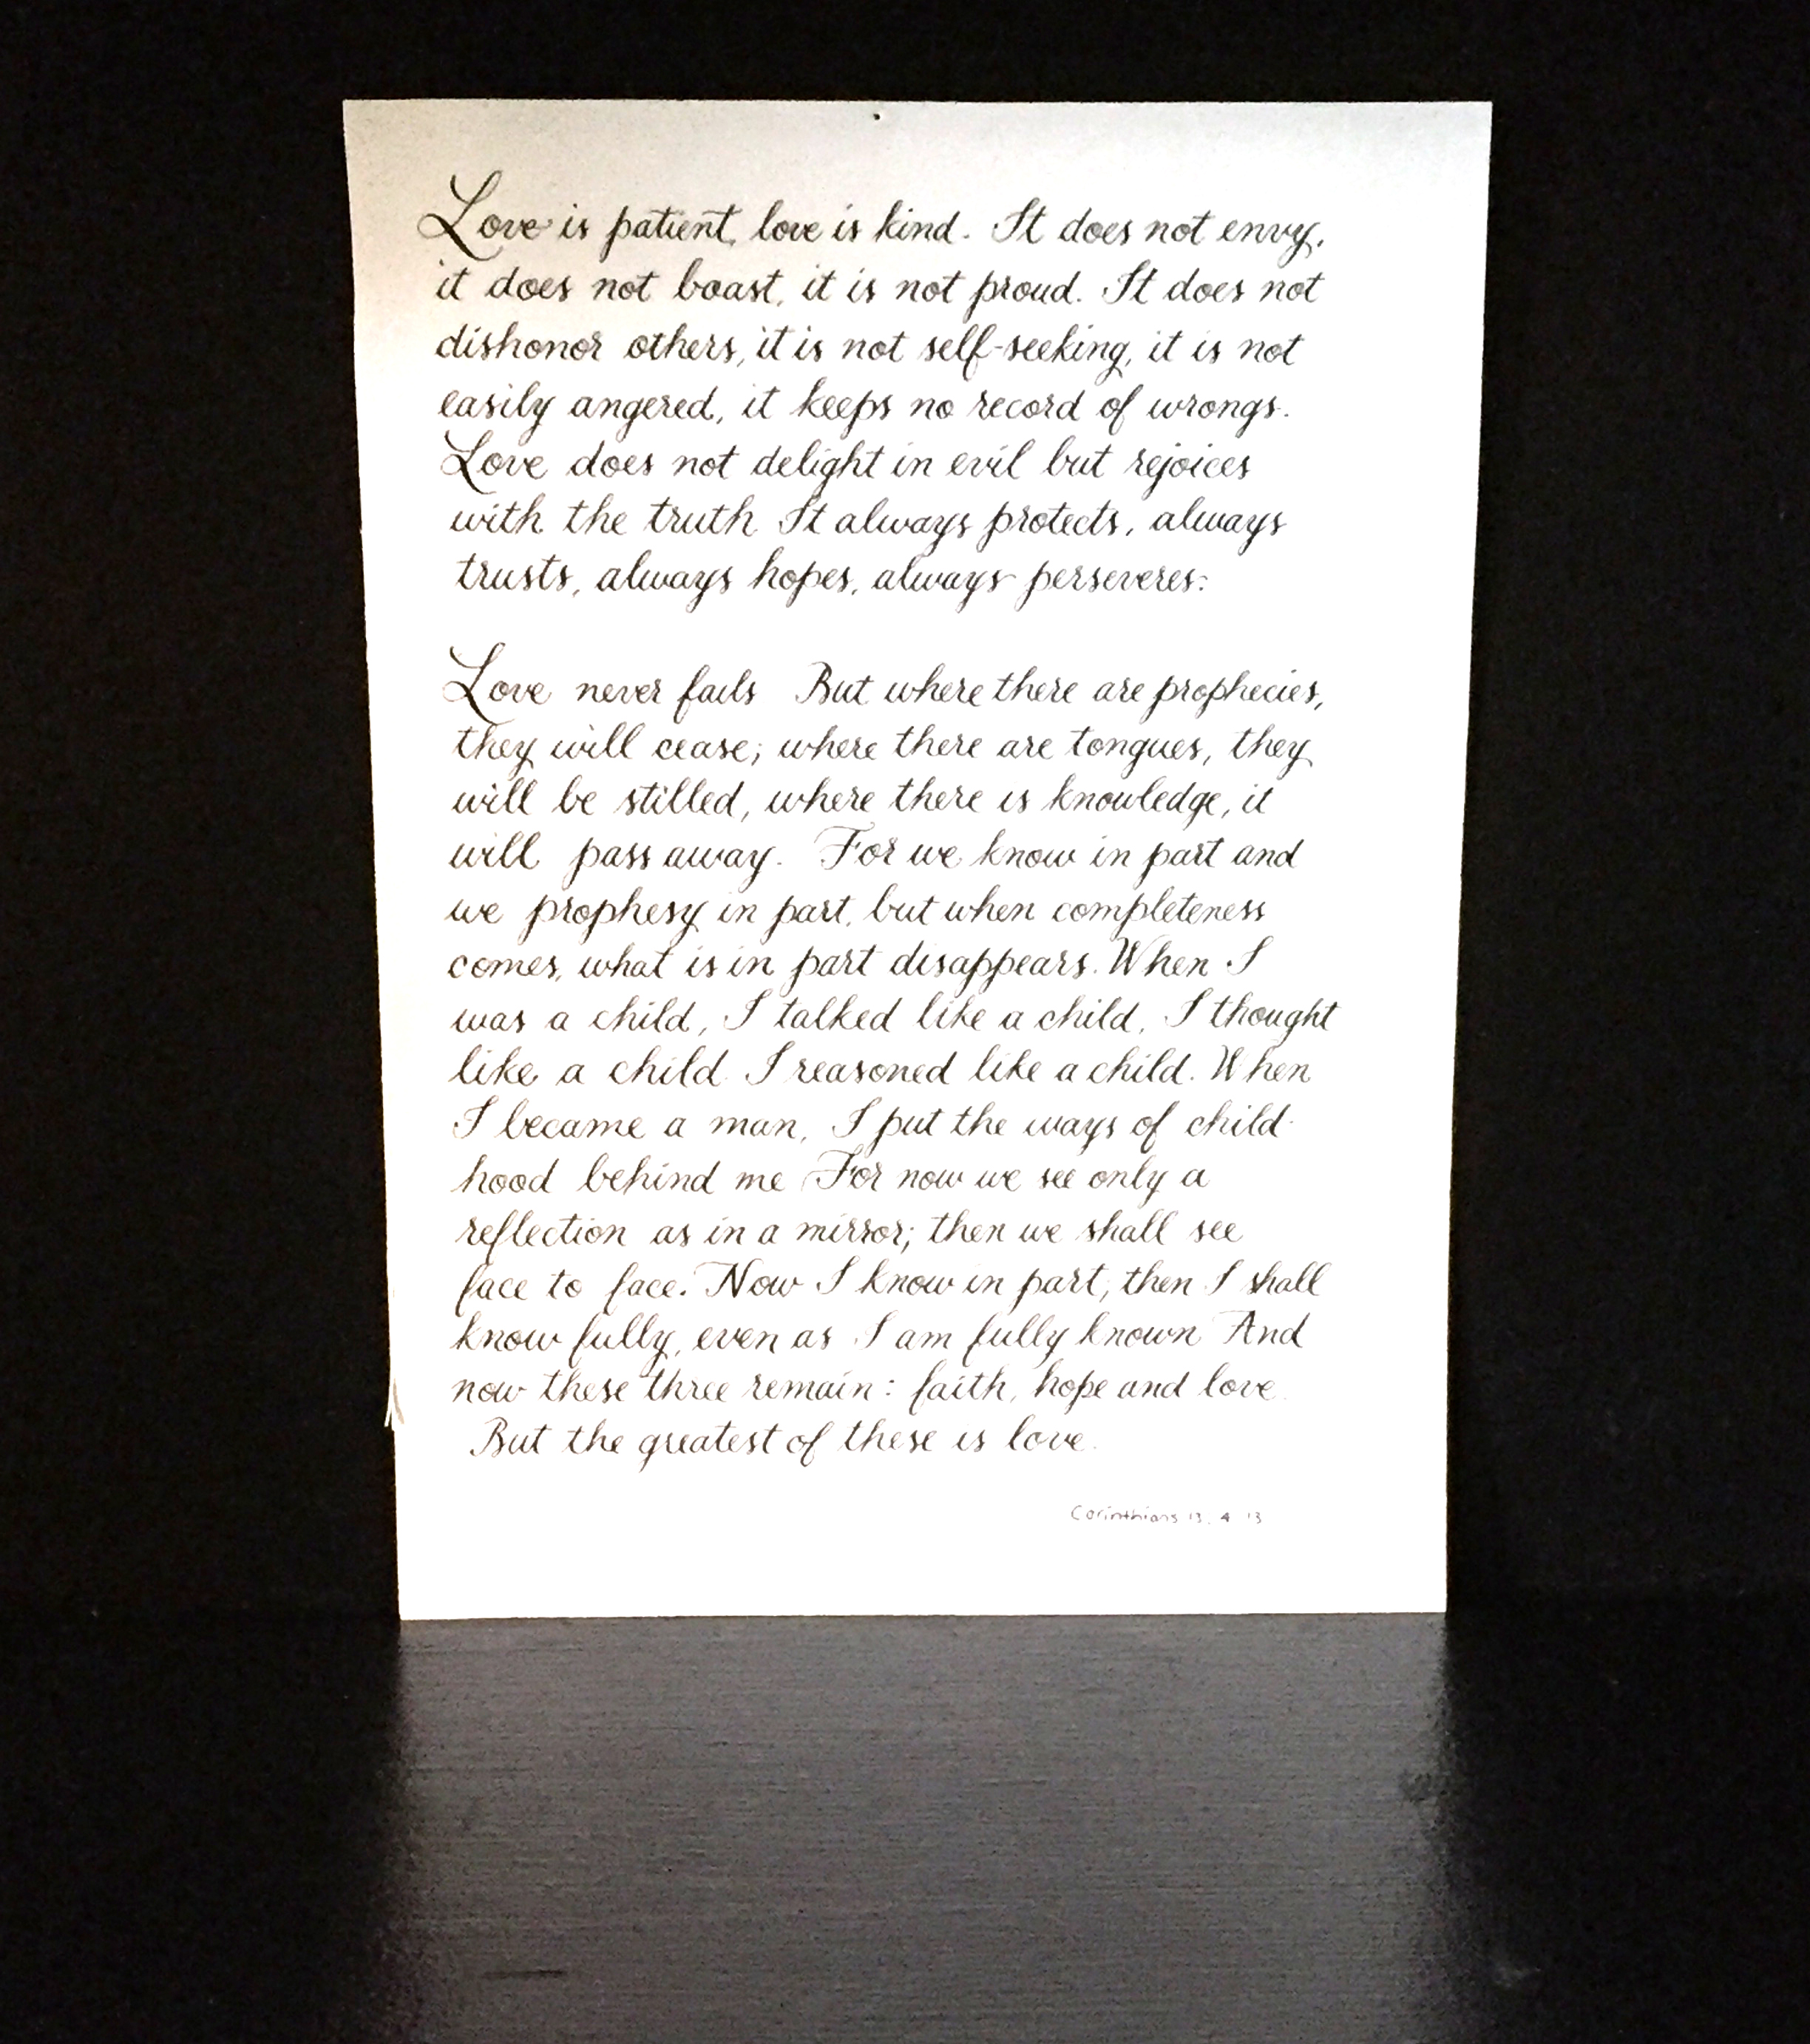 Love is patient, love is kind. It does not envy,
it does not boast, it is not proud. It does not
dishonor others, it is not self-seeking, it is not
easily angered, it keeps no record of wrongs.
Love does not delight in evil but rejoices
with the truth It always protects, always
trusts, always hopes, always perseveres.
Love never fails But where there are prophecies,
they will cease; where there are tongues, they
will be stilled, where there is knowledge, it
will pass away. For we know in part and
we prophesy in part, but when completeness
comes, what is in part disappears. When I
was a child, I talked like a child, I thought
like a child I reasoned like a child. When
I became a man, I put the ways of child-
hood behind me For now we see only a
reflection as in a mirror; then we shall see
face to face. Now I know in part; then I shall
know fully, even as I am fully known And
now these three remain: faith, hope and love
But the greatest of these is love.
Corinthians 13. 4 13